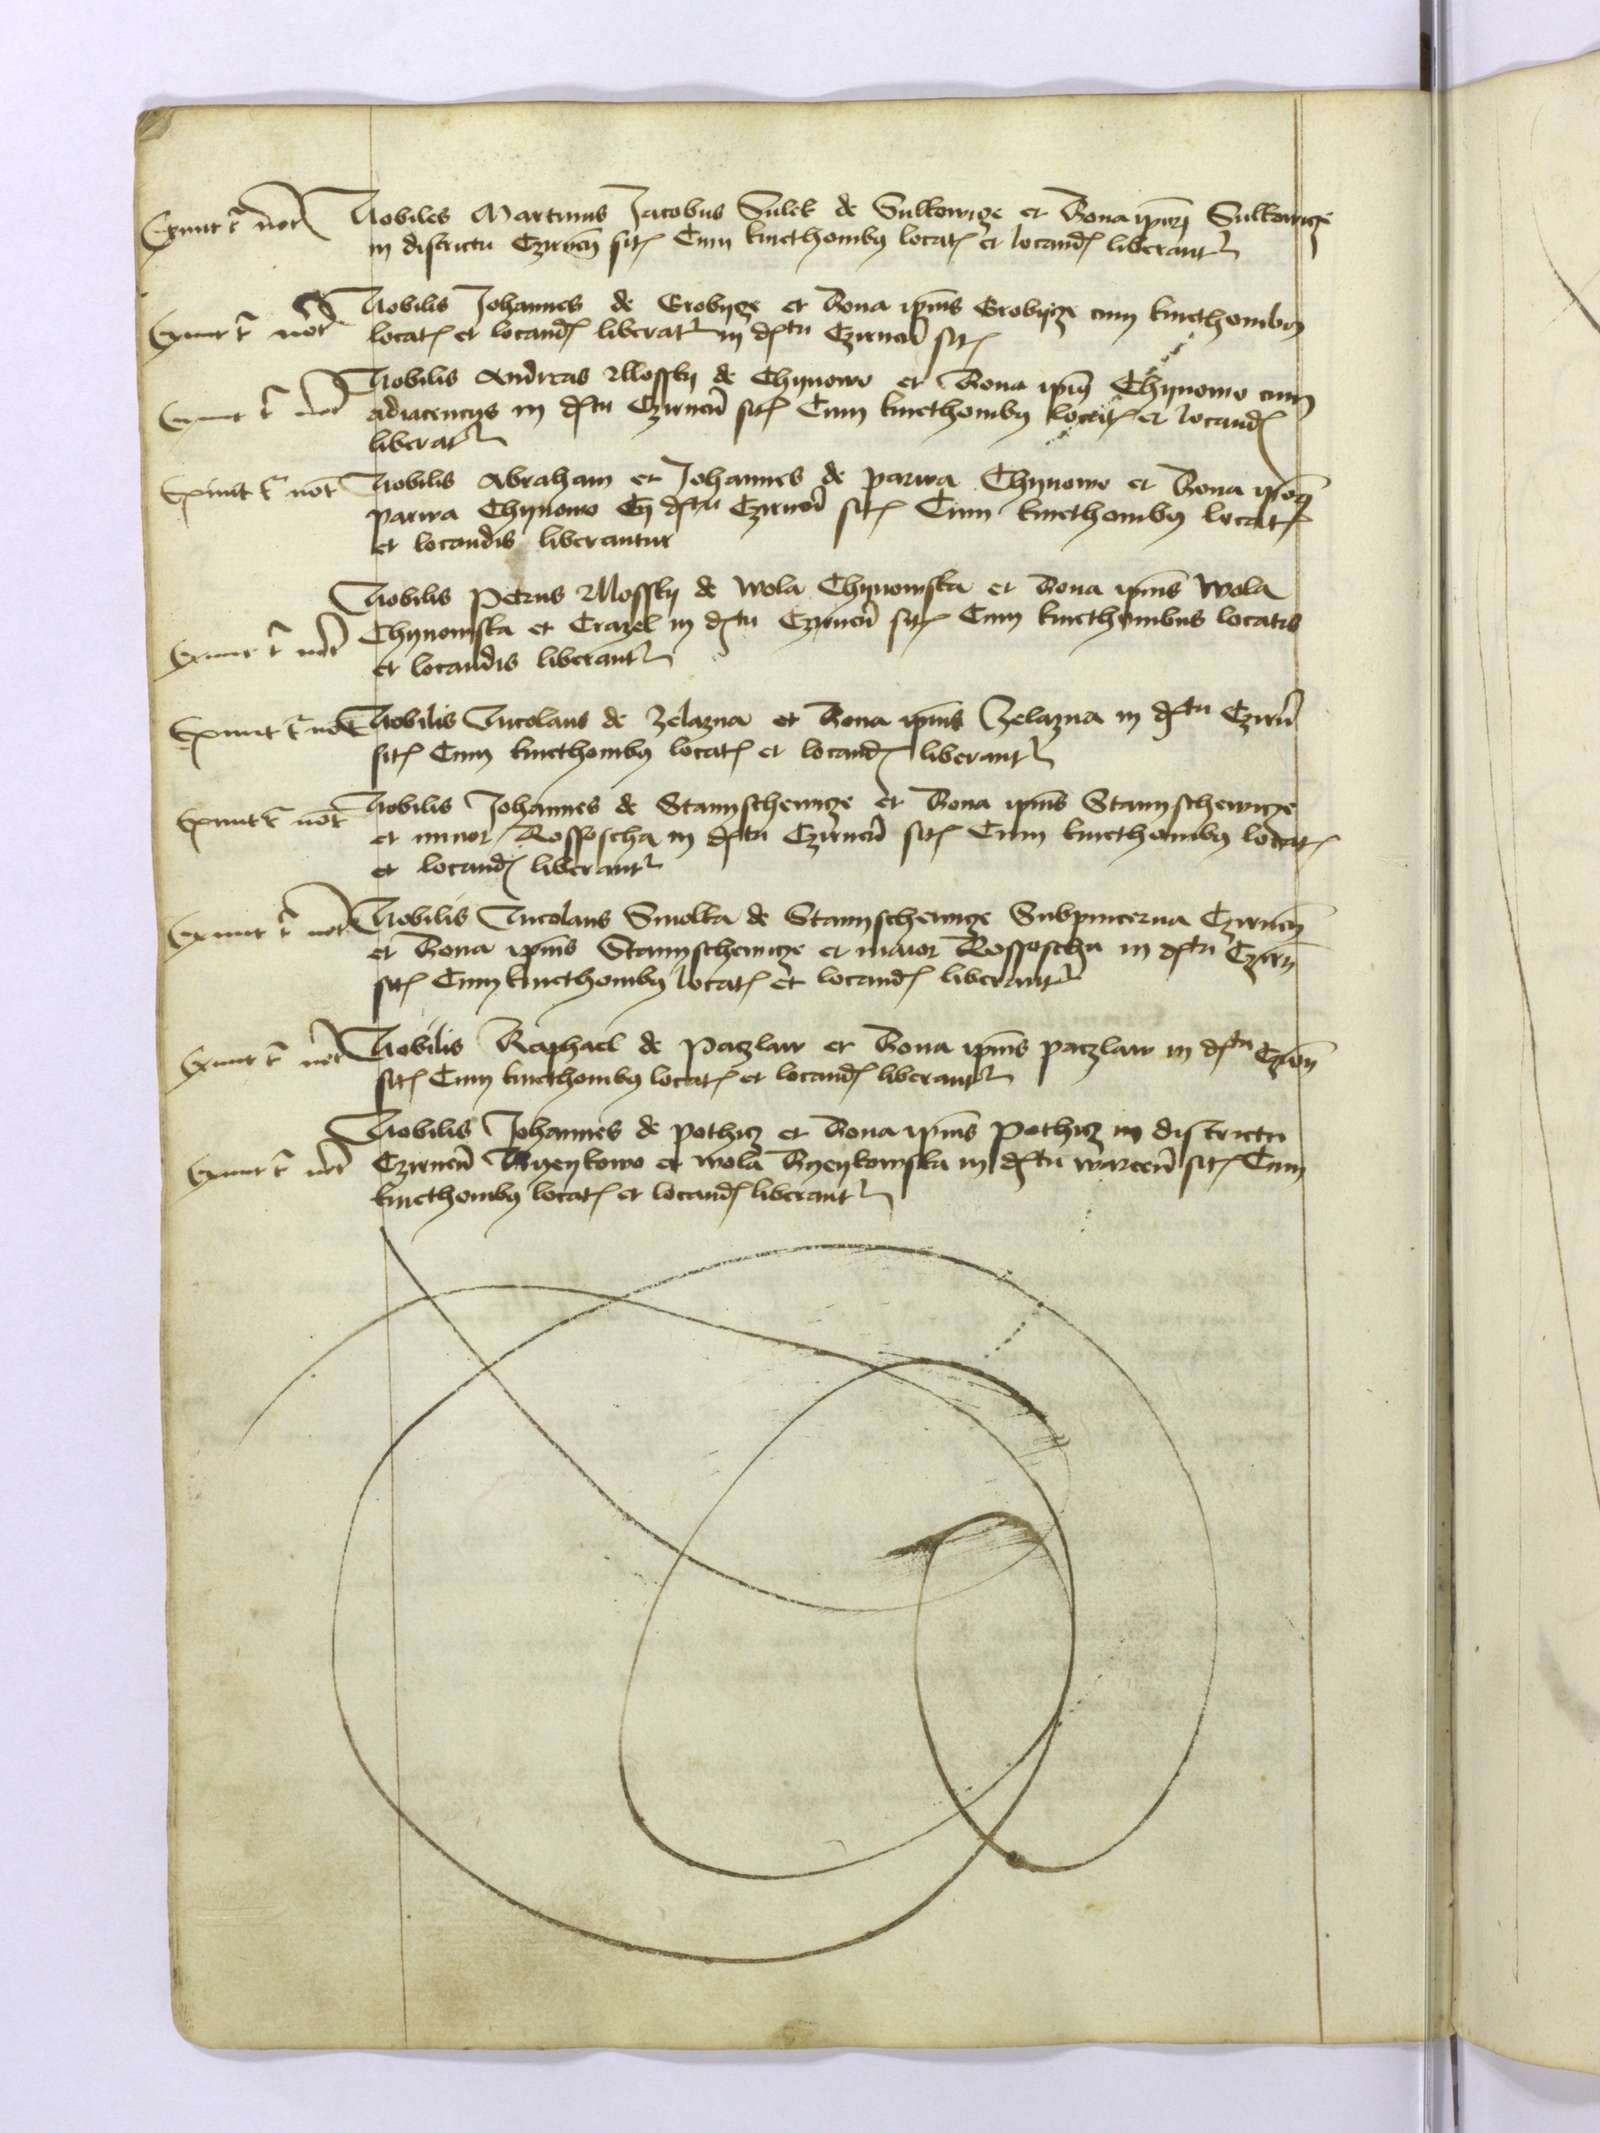 Exiuit r̃ not̃ Nobiles Martinus Jacobus Sulek de Sulkowicze et Bona ipõrũ Sulkowicze
in districtu Czirneñ sitꝭ Cum kmethonibꝰ locatꝭ et locandꝭ liberantʳ
Exiuit r̃ not̃ Nobilis Johannes de Grobycze et Bona ipiũs Grobycze cum kmethonibꝰ
locatꝭ et locandꝭ liberatʳ in dꝭtu Czirneñ sitꝭ
Exiuit r̃ not̃ Nobilis Andreas Mossky de Chynowo et Bona ipiꝰ Chynowo cum
adiacencijs in dꝭtu Czirneñ sitꝭ Cum kmethonibꝰ locatꝭ et locandꝭ
liberatʳ
Exiuit r̃ not̃ Nobilis Abraham et Johannes de parwa Chynowo et Bona ipõꝝ
parwa Chynowo in dꝭtu Czirneñ sitꝭ Cum kmethonibꝰ locatꝭ
et locandis liberantur
Nobilis Petrus Mossky de Wola Chynowska et Bona ipiũs Wola
Exiuit r̃ not̃ Chynowska et Crazel in dꝭtu Czirneñ sitꝭ Cum kmethonibus locatis
et locandis liberantʳ
Exiuit r̃ not̃ Nobilis Nicolaus de Zelazna et Bona ipiũs Zelazna in dꝭtu Czirñ
sitꝭ Cum kmethonibꝰ locatꝭ et locandꝭ liberantʳ
Exiuit r̃ not̃ Nobilis Johannes de Stanyschewicze et Bona ipiũs Stanyschewicze
et minor Rossoscha in dꝭtu Czirneñ sitꝭ Cum kmethonibꝰ locatꝭ
et locandꝭ liberantʳ
Exiuit r̃ not̃ Nobilis Nicolaus Smolka de Stanyschewicze Subpincerna Czirneñ
et Bona ipiũs Stanyschewicze et maior Rossoscha in dꝭtu Czirñ
sitꝭ Cum kmethonibꝰ locatꝭ et locandꝭ liberantʳ
Exiuit r̃ not̃ Nobilis Raphael de Paczlaw et Bona ipiũs paczlaw in dꝭtu Czirñ
sitꝭ Cum kmethonibꝰ locatꝭ et locandꝭ liberantʳ
Nobilis Johannes de pothicz et Bona ipiũs Pothicz in districtu
Exiuit r̃ not̃ Czirneñ Byeykowo et wola Byeykowska in dꝭtu warceñ sitꝭ Cum
kmethonibꝰ locatꝭ et locandꝭ liberantʳ